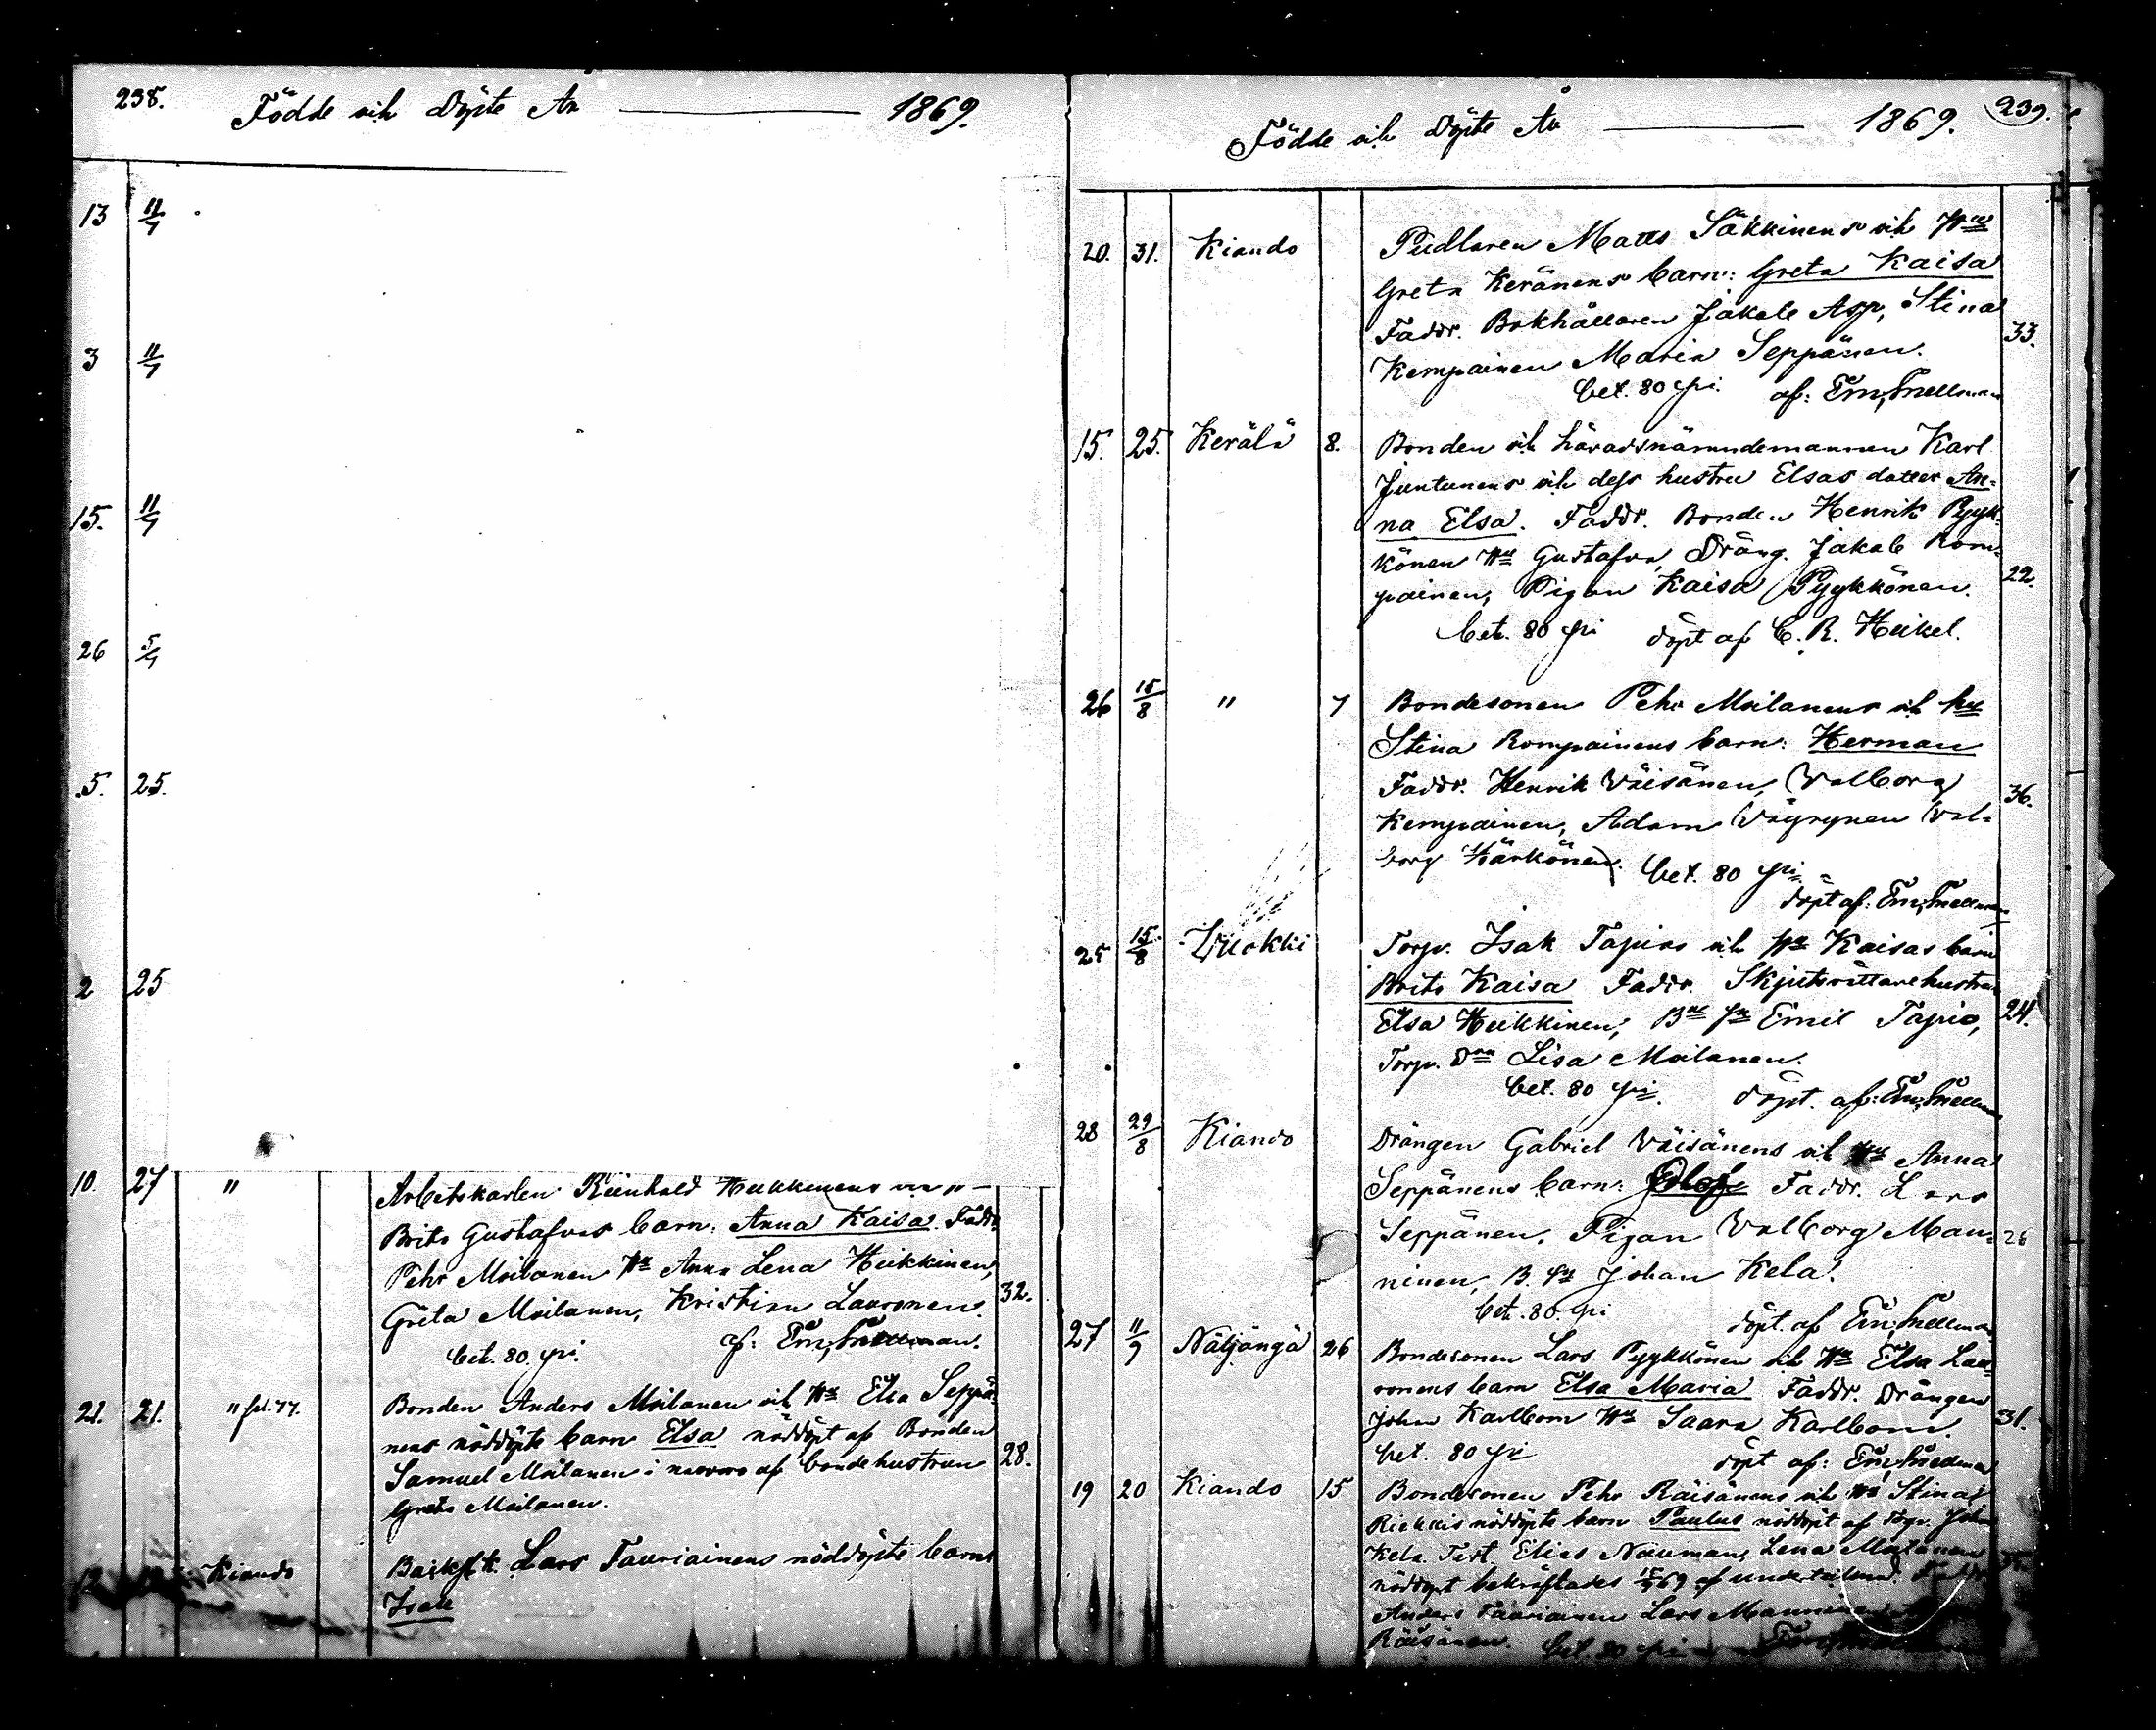 238. Födde och Döpte År 1869.
13 11/7
3 11/7
15. 11/7
26 5/7
5. 25.
2 25
10. 27 " Arbetskarlen Reinhold Heikkinens
Brita Gustafvas barn: Anna Kaisa. Faddr.
Pehr Moilanen Hu Anna Lena Heikkinen,
Greta Moilanen, Kristian Lauronen. 32.
bet. 80. pi. af: Em. Snellman.
21. 21. " fol. 77. Bonden Anders Moilanen och Hu Elsa Seppä-
nens nöddöpte barn Elsa nöddöpt af Bonden
Samuel Moilanen i närvaro af bondehustrun 28.
Greta Moilanen.
Kiando Lars Tauriainens nöddöpte barn
Isak
Födde och Döpte År 1869. 239.
20. 31. Kiando Pudlaren Matts Säkkinens och Hus
Greta Keränens barn: Greta Kaisa
Faddr. Bokhållaren Jakob Asp, Stina 33.
Kempainen Maria Seppänen.
bet. 80 pi. af: Em. Snellman
15. 25. Kerälä 8. Bonden och häradsnämndemannen Karl
Juntunens och dess hustru Elsas dotter An-
na Elsa. Faddr. Bonden Henrik Pyyk-
könen Hu Gustafva, Dräng. Jakob Rom-
painen, Pigan Kaisa Pyykkönen. 22.
bet. 80 pi döpt af C. R. Heikel.
26 15/8 " 7 Bondesonen Pehr Moilanens och hu
Stina Rompainens barn: Herman
Faddr. Henrik Väisänen, Valborg 36.
Kempainen, Adam Väyrynen Val-
borg Härkönen. bet. 80 pi
döpt af: Em. Snellman
25 15/8 Wuokki Torp. Isak Tapios och Hu Kaisas barn
Brita Kaisa Faddr. Skjutsrättarehustrun
Elsa Heikkinen, Emil Tapio, 24.
Torp. Lisa Moilanen.
bet. 80 pi. döpt. af: Em. Snellman
28 29/8 Kiando Drängen Gabriel Väisänens och Hu Anna
Seppänens barn: Faddr. Lars
Seppänen, Pigan Valborg Man- 26
ninen, B. Johan Kela.
bet. 80. pi döpt. af Em. Snellman
27 11/9 Näljängä 26 Bondesonen Lars Pyykkönen och Hu Elsa Lau-
ronens barn Elsa Maria Faddr. Drängen
John Karlbom Hu Saara Karlbom. 31.
bet. 80 pi döpt af: Em. Snellman
19 20 Kiando 15 Bondesonen Pehr Räisänens och Hu Stina
Riekkis nöddöpte barn Paulus nöddöpt af
Kela. Test. Elias Nauman, Lena Moilanen
nöddopet bekräftades af undertecknad. Faddr.
Anders Tauriainen Lars Manninen
Räisänen. bet. 80 pi